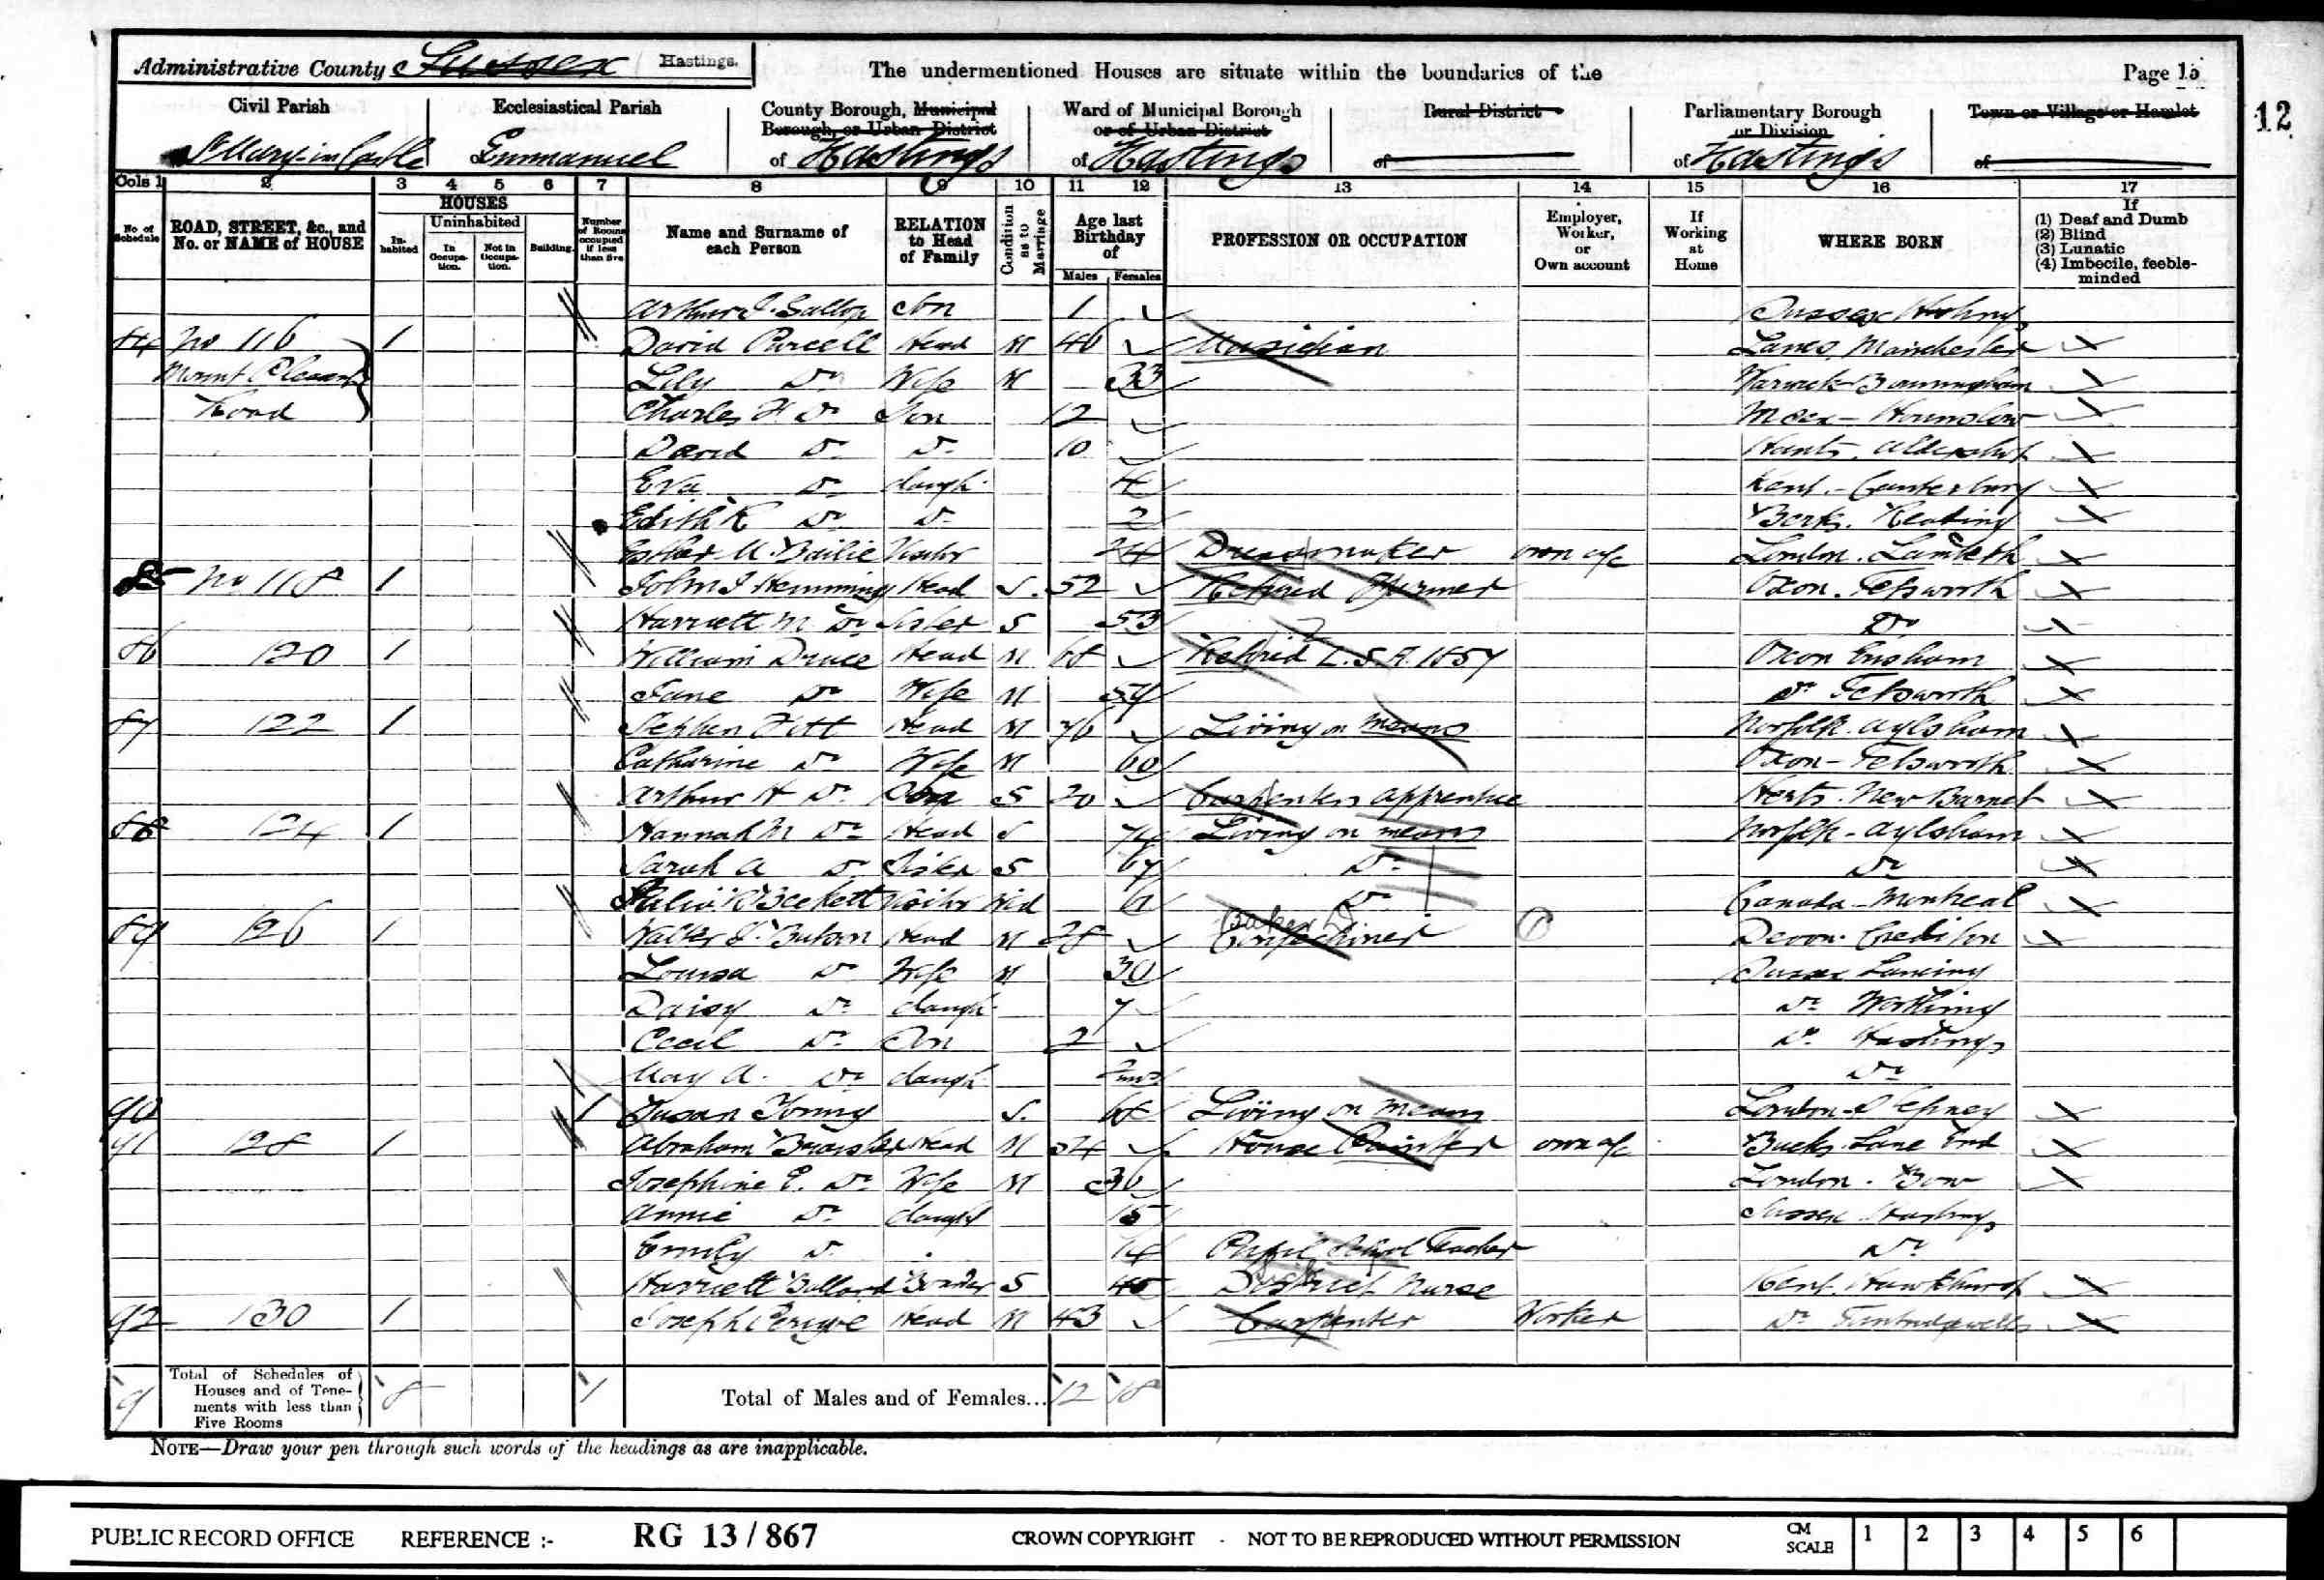 Administrative County Sussex Hastings. The undermentioned Houses are situate within the boundaries of the Page 15
12
Civil Parish Ecclesiastical Parish County Borough, Municipal Borough, or Urban District Ward of Municipal Borough or of Urban District Rural District Parliamentary Borough or Division Town or Village or Hamlet
St Mary-in-Castle Emmanuel of Hastings of Hastings of of Hastings of
Cols 1 2 3 4 5 6 7 8 9 10 11 12 13 14 15 16 17
No of Schedule ROAD, STREET, &c., and No. or NAME of HOUSE HOUSES Inhabited Uninhabited In Occupation. Not in Occupation. Building Number of Rooms occupied if less than five Name and Surname of each Person RELATION to Head of Family Condition as to Marriage Age last Birthday of Males Females PROFESSION OR OCCUPATION Employer, Worker, or Own account If Working at Home WHERE BORN If (1) Deaf and Dumb (2) Blind (3) Lunatic (4) Imbecile, feeble-minded
Arthur J. Gallop Son 1 Sussex Hastings
84 No 116 1 David Purcell Head M 46 Musician Lancs. Manchester
Mount Pleasant Lily Do Wife M 33 Warwick Birmingham
Road Charles H Do Son 12 Msex - Hounslow
David Do Do 10 Hants. Aldershot
Eva Do daugh. 4 Kent. Canterbury
Edith K Do Do 2 Berks. Reading
Esther M. Bailie Visitor 24 Dressmaker own a/c London. Lambeth
85 No 118 1 John J Hemming Head S. 52 Retired Farmer Oxon. Tetsworth
Harriett M. Do Sister S 53 Do
86 120 1 William Druce Head M 68 Retired L.S.A. 1857 Oxon Ensham
Jane Do Wife M 57 Do Tetsworth
87 122 1 Stephen Fitt Head M 76 Living on means Norfolk. Aylsham
Catharine Do Wife M 60 Oxon - Tetsworth
Arthur H Do Son S 20 Carpenters apprentice Herts. New Barnet
88 124 1 Hannah M Do Head S Living on means Norfolk - Aylsham
Sarah A Do Sister S 67 Do Do
Beckett Visitor Wid Do Canada - Montreal
89 126 1 Walter Head M 28 Baker Confectioner Devon. Crediton
Louisa Do Wife M 30 Sussex Lancing
Daisy Do daugh. 7 Do Worthing
Cecil Do Son 2 Do Hastings
May A. Do daugh. 2 mos Do
90 1 Susan Young S. Living on means London - Stepney
91 128 1 Abraham Head M House Painter own a/c Bucks. Lane End
Josephine E. Do Wife M London. Bow
Annie Do daugh 15 Sussex Hastings
Emily Do 14 Pupil School Teacher Do
Harriett Ballard Boarder S District Nurse Kent. Hawkhurst
92 130 1 Joseph Head M 43 Carpenter Worker Do Tunbridgewells
9 Total of Schedules of Houses and of Tenements with less than Five Rooms 8 1 Total of Males and of Females... 12 18
NOTE—Draw your pen through such words of the headings as are inapplicable.
PUBLIC RECORD OFFICE REFERENCE :- RG 13 / 867 CROWN COPYRIGHT - NOT TO BE REPRODUCED WITHOUT PERMISSION CM SCALE 1 2 3 4 5 6